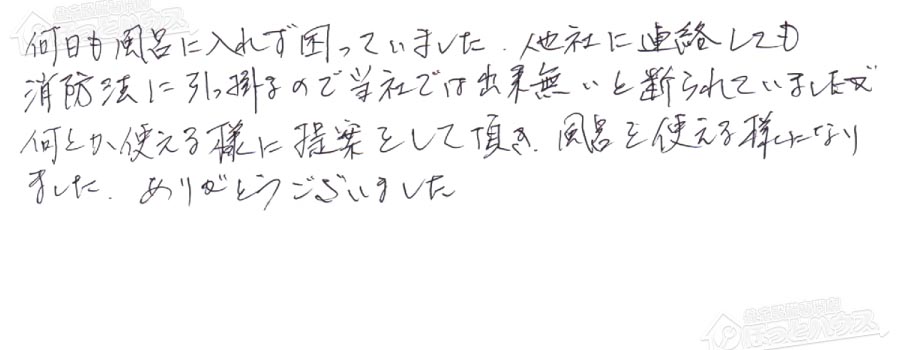 何日も風呂に入れず困っていました、他社に連絡しても
消防法に引っ掛るので当社では出来無いと断られていましたが
何とか使える様に提案をして頂き、風呂を使える様になり
ました。ありがとうございました
ほっとハウス
ほっとハウス